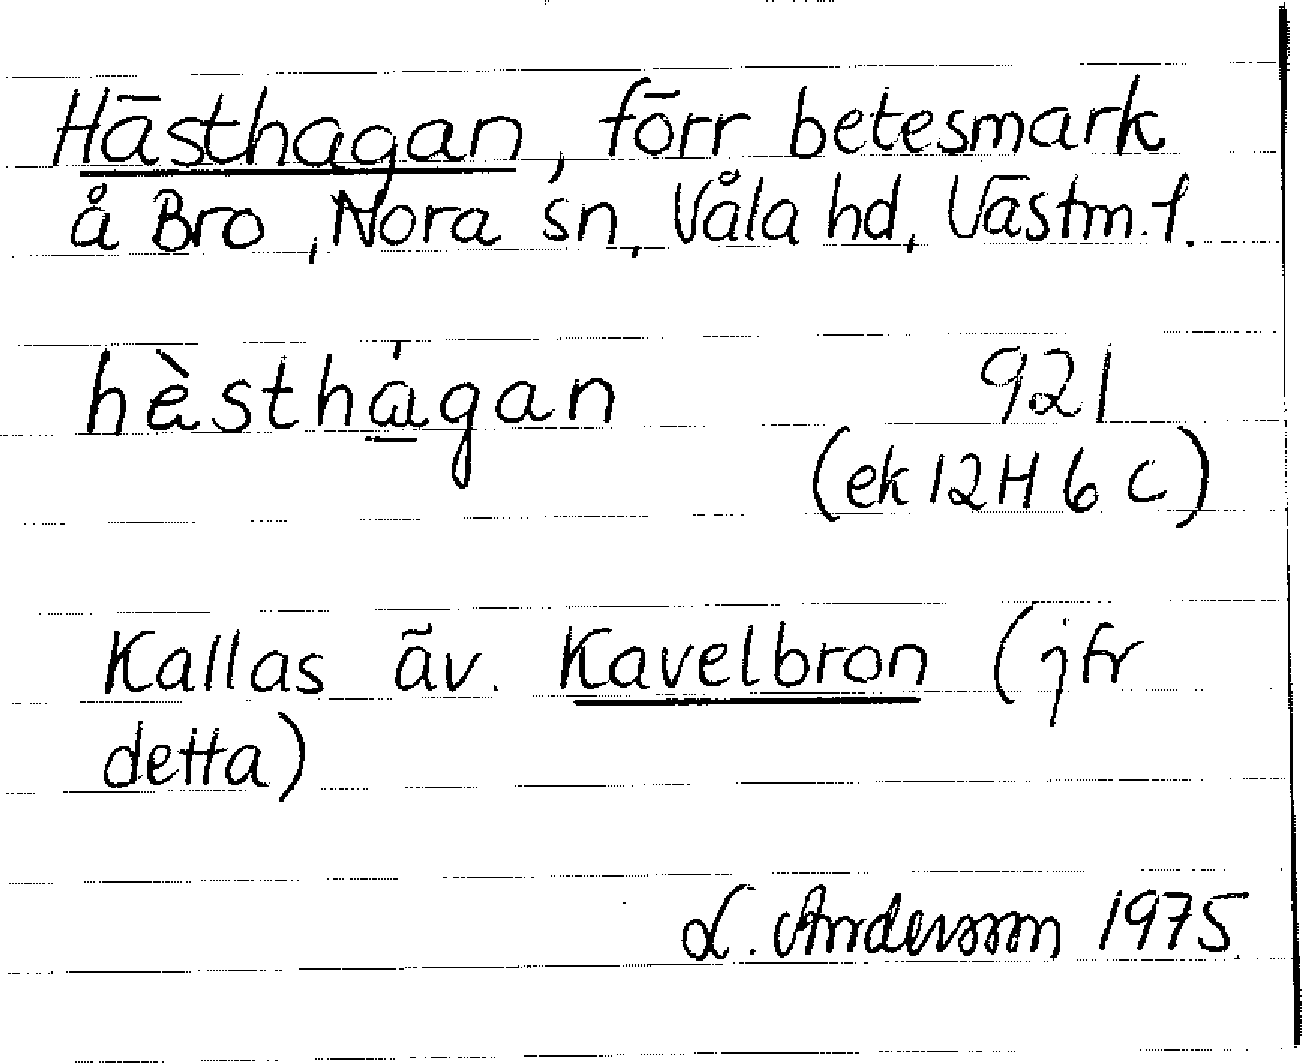 Hästhagan, förr betesmark
å Bro, Nora sn, Våla hd, Västm. l.
hèstha̍gan 921
(ek 12H 6 c)
Kallas äv. Kavelbron (jfr
detta)
L. Andersson 1975